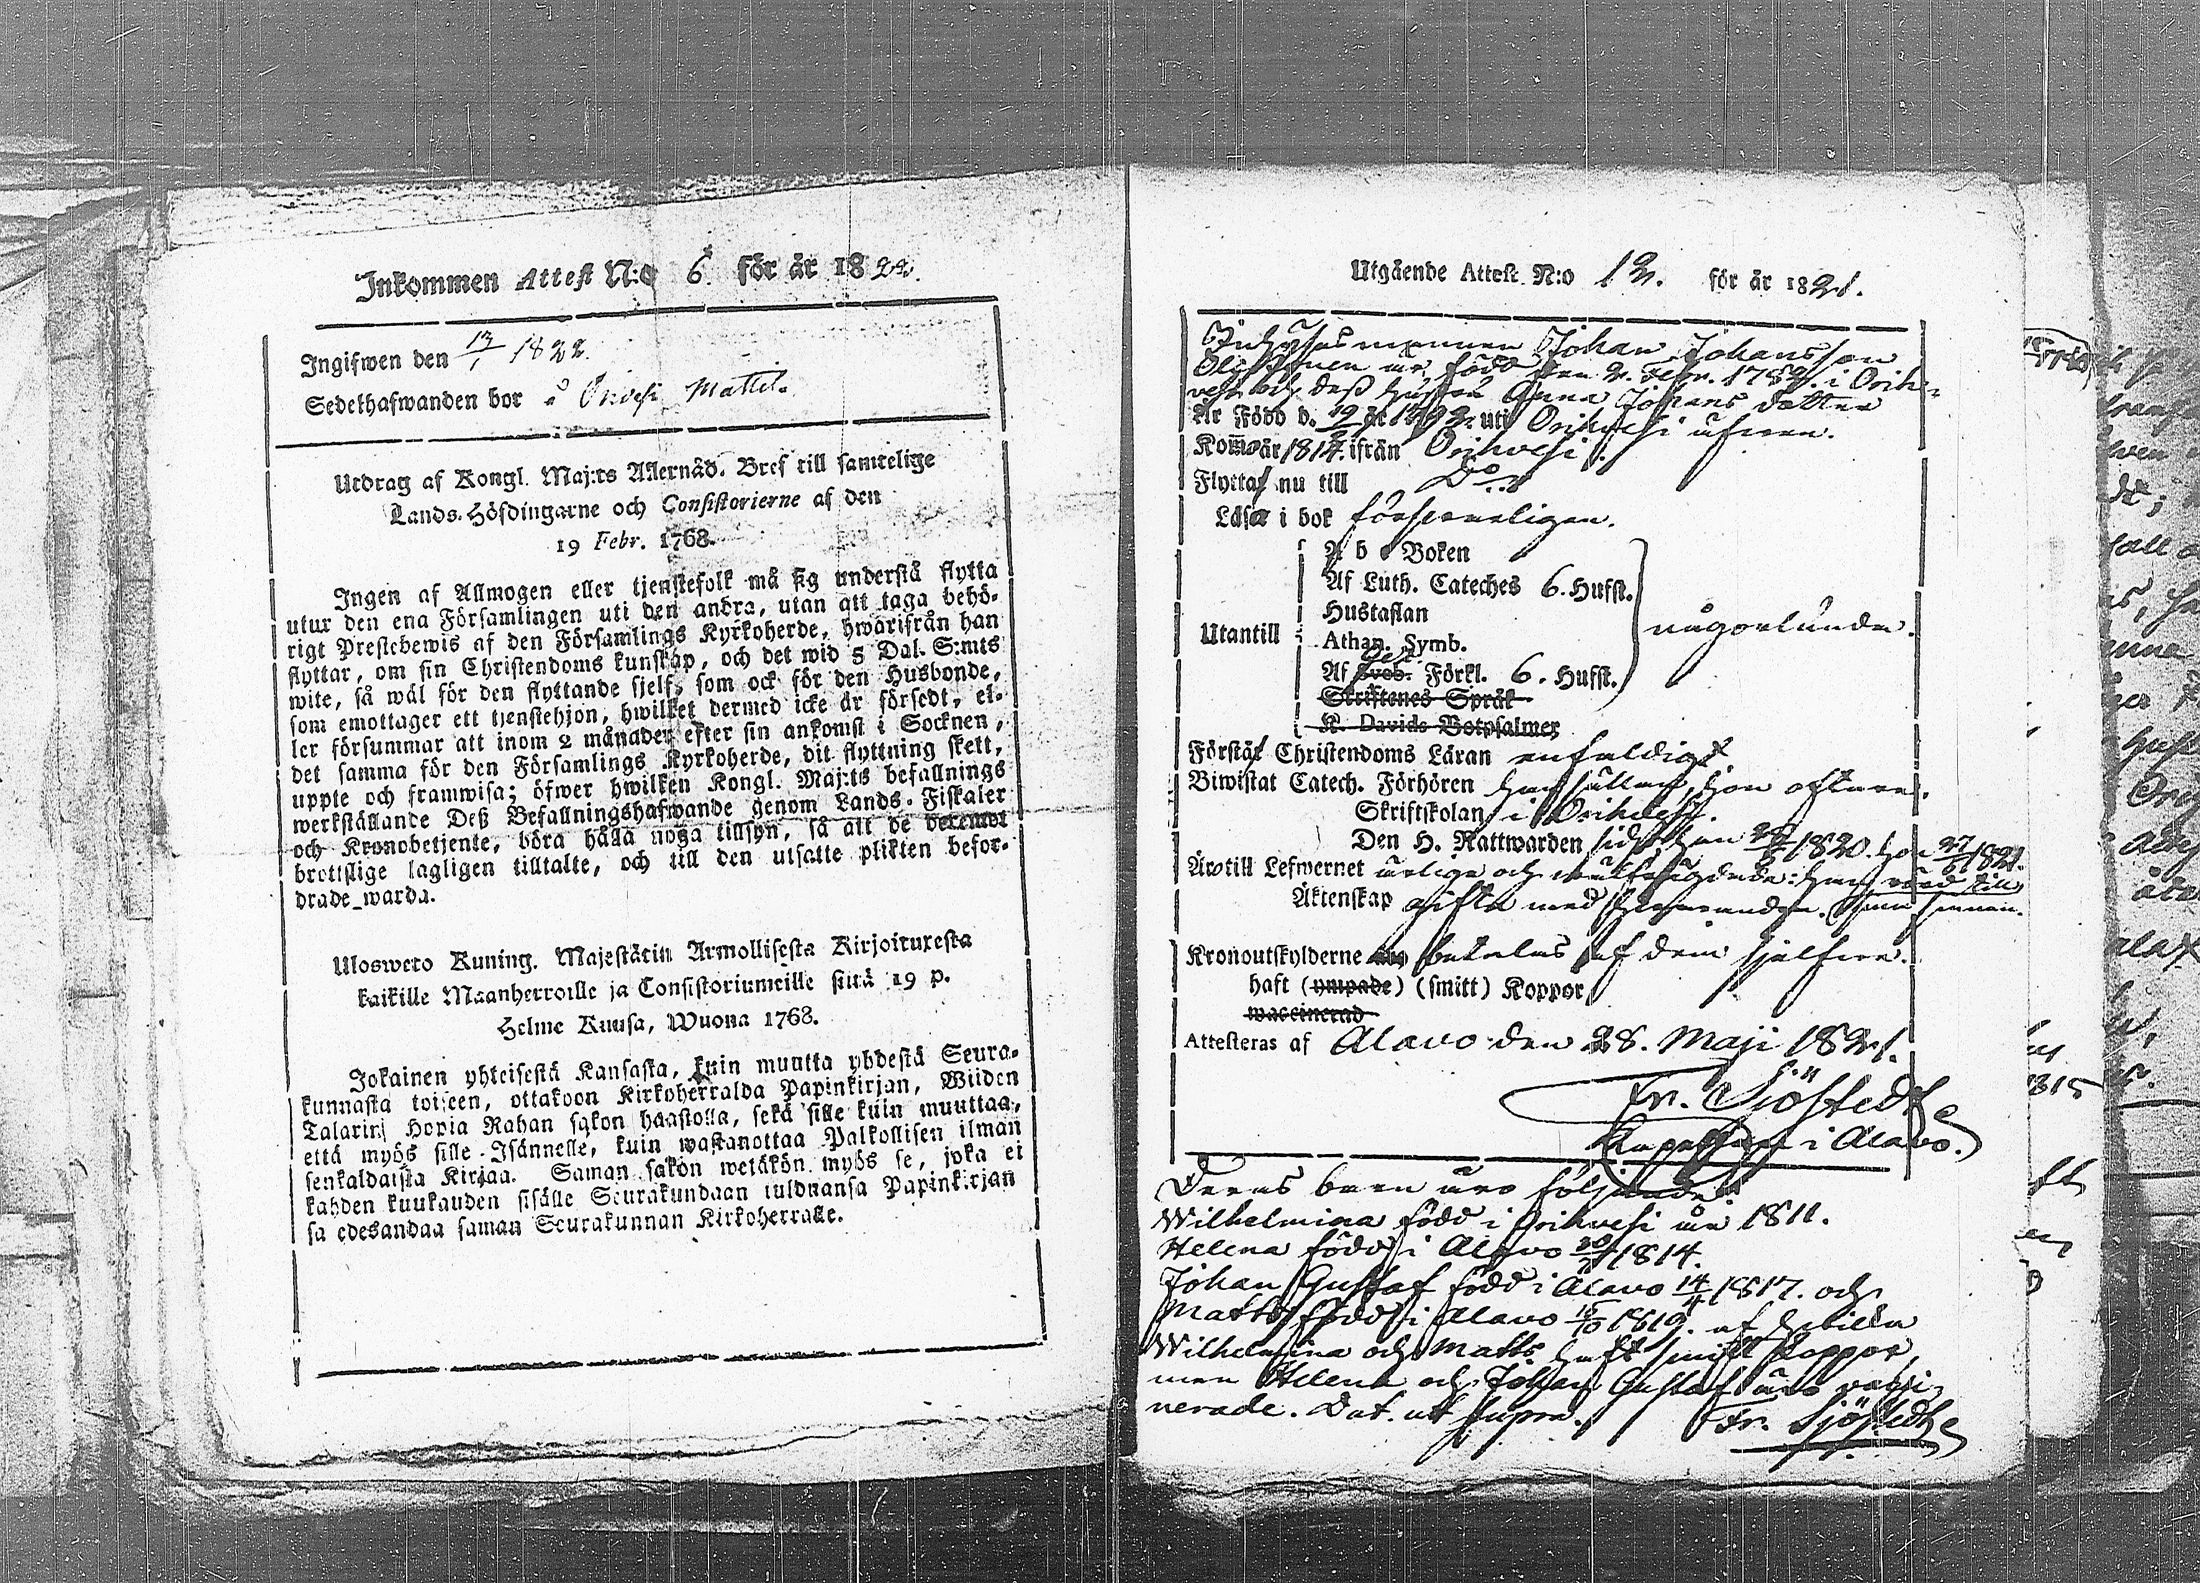 Inkommen Attest N:o 6. för år 1822.
Ingifwen den 13/1 1822.
Sedethafwanden bor å Onvesi Mattila
Utdrag af Kongl. Maj:ts Allernåd. Bref till samtelige
Lands-Höfdingarne och Consistorierne af den
19 Febr. 1768.
Ingen af Allmogen eller tjenstefolk må sig understå flytta
utur den ena Församlingen uti den andra, utan att taga behö-
rigt Prestebewis af den Församlings Kyrkoherde, hwarifrån han
flyttar, om sin Christendoms kunskap, och det wid 5 Dal. S:mts
wite, så wäl för den flyttande sjelf, som ock för den Husbonde,
som emottager ett tjenstehjon, hwilket dermed icke är försedt, el-
ler försummar att inom 2 månader efter sin ankomst i Socknen,
det samma för den Församlings Kyrkoherde, dit flyttning skett,
uppte och framwisa; öfwer hwilken Kongl. Maj:ts befallnings
werkställande Deß Befallningshafwande genom Lands-Fiskaler
och Kronobetjente, böra hålla noga tillsyn, så att de deremot
brottslige lagligen tilltalte, och till den utsatte plikten befor-
drade warda.
Ulosweto Kuning. Majestätin Armollisesta Kirjoituxesta
kaikille Maanherroille ja Consistoriumeille siitä 19 p.
Helme Kuusa, Wuona 1768.
Jokainen yhteisestä Kansasta, kuin muutta yhdestä Seura-
kunnasta toiseen, ottakoon Kirkoherralda Papinkirjan, Wiiden
Talarin Hopia Rahan sakon haastolla, sekä sille kuin muuttaa,
että myös sille Isännelle, kuin wastanottaa Palkollisen ilman
senkaldaista Kirjaa. Saman sakon wetäkön myös se, joka ei
kahden kuukauden sisälle Seurakundaan tulduansa Papinkirjan
sa edesandaa saman Seurakunnan Kirkoherralle.
Utgående Attest N:o 12. för år 1821.
Inhysesmannen Johan Johansson
är född den 2. Febr. 1782. i Orih-
vesi och deß hustru Anna Johans dotter
Är Född d. 19 år 1792 uti Orihvesi äfven.
Kom år 1814 ifrån Orihvesi.
Flyttat nu till Do
Läsa i bok försvarligen.
A b c Boken
Af Luth. Cateches 6. Hufst.
Hustaflan
Utantill Athan. Symb. någorlunda.
Af Sveb. Förkl. 6. Hufst.
Skriftenes Språk
K. Davids Botpsalmer
Förstå Christendoms Läran enfaldigt
Biwistat Catech. Förhören han sällan, hon oftare.
Skriftskolan i Orihvesi.
Den H. Nattwarden sidst han 1820. hon 27 1821.
Äro till Lefwernet ärlige och
Äktenskap gifta med hvarandra.
Kronoutskylderne betalas af dem sjelfve.
haft (ympade) (smitt) Koppor
waccinerad
Attesteras af Alavo den 28. Maji 1821.
Fr. Sjöstedt
Kapellan i Alavo.
Deras barn äro följande:
Wilhelmina född i Orihvesi år 1811.
Helena född i Alavo 30 1814.
Johan Gustaf född i Alavo 14/4 1817. och
Matts född i Alavo 16/10 1819. af hvilka
Wilhelmina och Matts haft smitt Koppor,
men Helena och Johan Gustaf äro vacci-
nerade. Dat. ut supra.
Fr. Sjöstedt